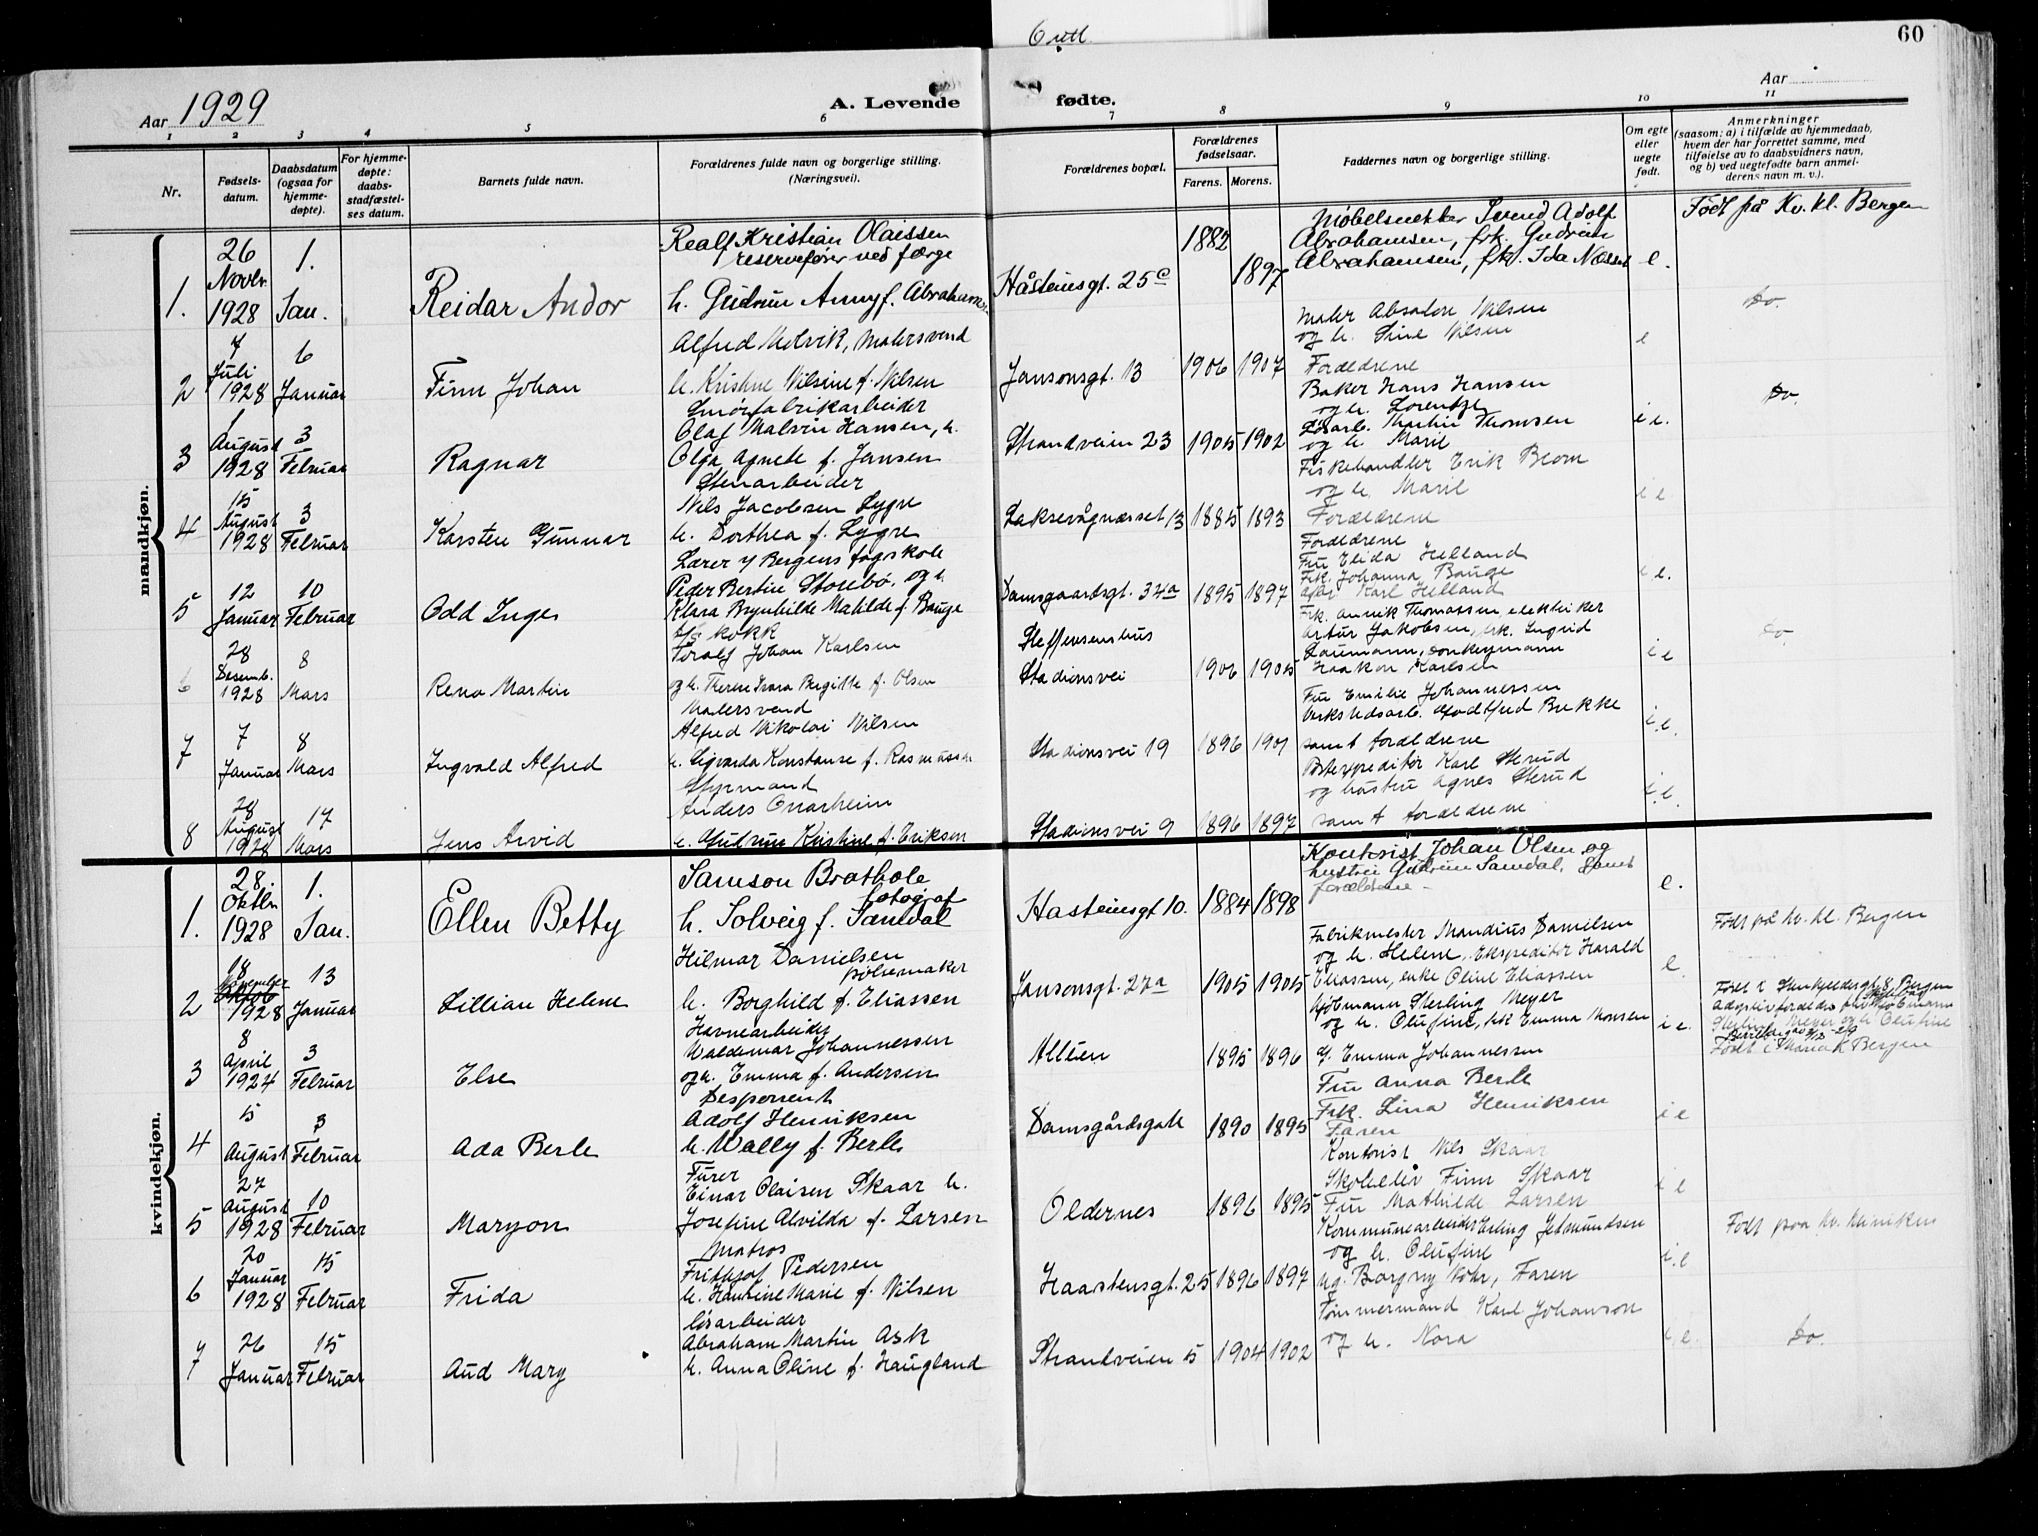 60
Aar 1929
A. Levende fødte.
Aar
1 2 3 4 5 6 7 8 9 10 11
Nr.
Fødsels-
datum.
Daabsdatum
(ogsaa for
hjemme-
døpte).
For hjemme-
døpte:
daabs-
stadfæstel-
ses datum.
Barnets fulde navn.
Forældrenes fulde navn og borgerlige stilling.
(Næringsvei).
Forældrenes bopæl.
Forældrenes
fødselsaar.
Farens. Morens.
Faddernes navn og borgerlige stilling.
Om egte
eller
uegte
født.
Anmerkninger
(saasom: a) i tilfælde av hjemmedaab,
hvem der har forrettet samme, med
tilføielse av to daabsvidners navn,
og b) ved uegtefødte barn anmel-
derens navn m. v.).
mandkjøn.
1.
26
Novbr
1928
1.
Jan.
Reidar Andor
Realf Kristian Olaissen
reservefører ved færge
h. Gudrun Anny f. Abrahams
Håsteinsgt. 25c
1882
1897
Møbelsnekker Svend Adolf
Abrahamsen, frk. Gudrun
Abrahamsen, frk. Ida Næss
e.
Født på Kv. kl. Bergen
2
7
Juli
1928
6
Januar
Finn Johan
Alfred Melvik, malersvend
h. Kristine Nilsine f. Nilsen
Jansonsgt. 13
1906
1907
Maler Absalon Nilsen
og h. Sine Nilsen
Foreldrene
e
Do.
3
1
August
1928
3
Februar
Ragnar
Smørfabrikarbeider
Olaf Malvin Hansen, h.
Olga Agnete f. Jansen
Strandveien 23
1905
1902
Baker Hans Hansen
og h. Lorentze
Løsarb. Martin Thomsen
og h. Maril
i e.
Do.
4
15
August
1928
3
Februar
Karsten Gunnar
Stenarbeider
Nils Jacobsen Lygre
h. Dorthea f. Lygre
Laksevågnæsset 13
1885
1893
Fiskehandler Erik Beom
og h. Maril
Foreldrene
i e
5
12
Januar
10
Februar
Odd Inge
Lærer v/ Bergens fagskole
Peder Bertin Storebø, og h.
Klara Brynhilde Matilde f. Bauge
Damsgaardsgt. 34a
1895
1897
Foreldrene
Fru Elida Helland
Frk. Johanna Bauge
Karl Helland
i e.
6
28
Desemb.
1928
8
Mars
Reno Martin
kokk
Toralf Johan Karlsen
og h. Therese Ivara Birgitte f. Olsen
Steffensenshus
Stadionsvei
1906
1905
Frk. Annik Thomassen elektriker
Artur Jakobsen, frk. Ingrid
Laumann,
Haakon Karlsen
i e
Do
7
7
Januar
8
Mars
Ingvald Alfred
Malersvend
Alfred Nikolai Nilsen
h. Sigvarda Konstanse f. Rasmussen
Stadionsvei 19
1896
1901
Fru Emilie Johannessen
Verkstedsarb. Godtfred Bekke
samt foreldrene
i e.
8
28
August
1928
17
Mars
Jens Arvid
Styrmand
Anders Onarheim
h. Gudrun Kristine f. Eriksen
Stadionsvei 9
1896
1897
Postexpeditør Karl Sterud
og hustru Agnes Sterud
samt foreldrene
i e.
kvindekjøn.
1.
28.
Oktbr
1928
1.
Jan.
Ellen Betty
Samson Brathole
fotograf
h. Solveig f. Samdal
Hasteinsgt 10.
1884
1898
Kontorist Johan Olsen og
hustru Gudrun Samdal, samt
forældrene
e.
Født på kv. kl. Bergen
2
18
November
1928
13
Januar
Lillian Helene
Hilmar Danielsen
pølsemaker
h. Borghild f. Eliassen
Jansonsgt. 27a
1905
1905
Fabrikmester Mandius Danielsen
og h. Helene, Ekspeditør Harald
Eliassen, enke Oline Eliassen
e.
3
8
April
1924
3
Februar
Else
Havnearbeider
Waldemar Johannessen
og h. Emma f. Andersen
Alleen
1895
1896
Formann Sterling Meyer
og h. Olufine, frk Emma Monsen
Emma Johannessen
i e.
Bergen
Adoptivforeldre
Meyer og h. Olufine
4
15
August
3
Februar
Ada Berle
Disponent
Adolf Henriksen
h. Wally f. Berle
Damsgårdsgate
1890
1895
Fru Anna Berle
Frk. Lina Henriksen
Faren
i e
Bergen
5
27
August
1928
10
Februar
Maryon
Furer
Einar Olaisen Skaar h.
Josefine Alvilda f. Larsen
Oldernes
1896
1895
Kontorist Nils Skaar
Skoleelev Finn Skaar
Fru Mathilde Larsen
i e
6
20
Januar
1928
15
Februar
Frida
Matros
Frithjof Pedersen
h. Hansine Marie f. Nilsen
Haasteinsgt. 25
1896
1897
Kommunearbeider Erling Jetmundsen
og h. Olufine
Ug. Borgny Mohr, Faren
i e
Født paa Kv. kliniken
7
26
Januar
15
Februar
Aud Mary
løsarbeider
Abraham Martin Ask
h. Anna Oline f. Haugland
Strandveien 5
1904
1902
Tømmermand Karl Johanson
og h. Nora
i e.
Do.